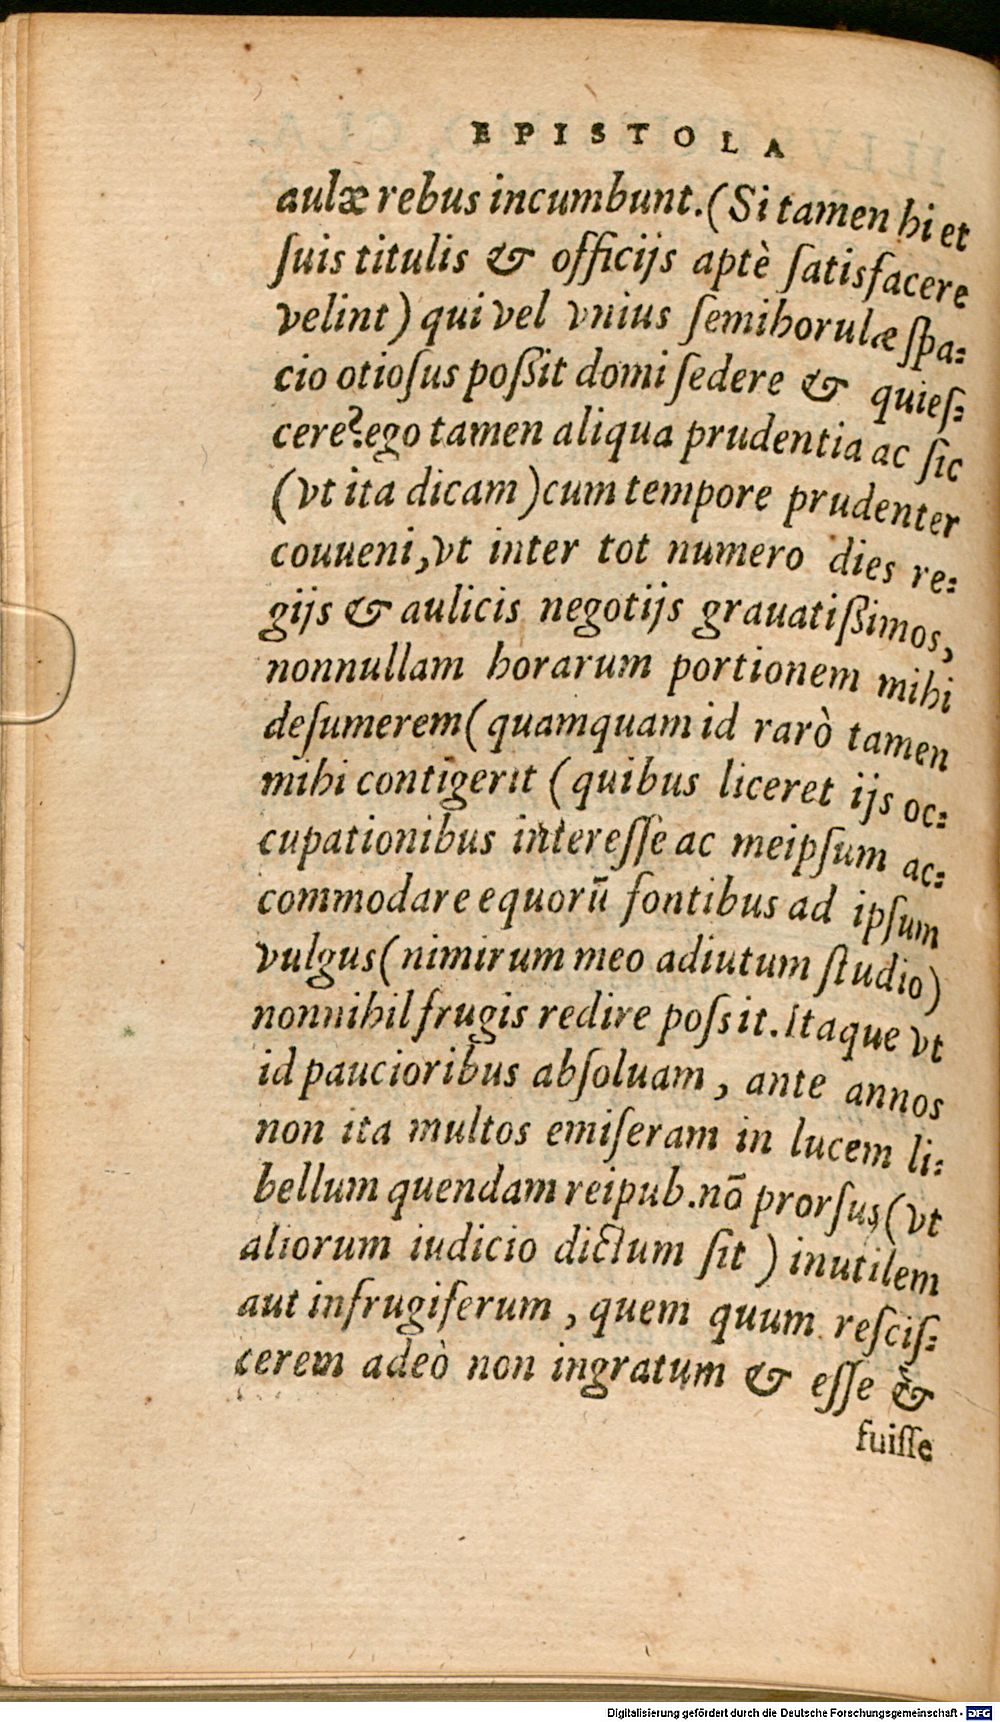 EPISTOLA
aulæ rebus incumbunt.(Si tamen hi et
ſuis titulis & officijs aptè ſatisfacere
velint) qui vel vnius ſemihorulæ ſpa-
cio otioſus poßit domi ſedere & quieſ-
cere?ego tamen aliqua prudentia ac ſic
(vt ita dicam)cum tempore prudenter
couueni,vt inter tot numero dies re-
gijs & aulicis negotijs grauatißimos,
nonnullam horarum portionem mihi
deſumerem(quamquam id rarò tamen
mihi contigerit (quibus liceret ijs oc-
cupationibus intereſſe ac meipſum ac-
commodare equorū fontibus ad ipſum
vulgus(nimirum meo adiutum ſtudio)
nonnihil frugis redire poſsit.Itaque vt
id paucioribus abſoluam, ante annos
non ita multos emiſeram in lucem li-
bellum quendam reipub.nō prorſus(vt
aliorum iudicio dictum ſit) inutilem
aut infrugiferum, quem quum reſciſ-
cerem adeò non ingratum & eſſe &
fuiſſe
Digitalisierung gefördert durch die Deutsche Forschungsgemeinschaft - DFG